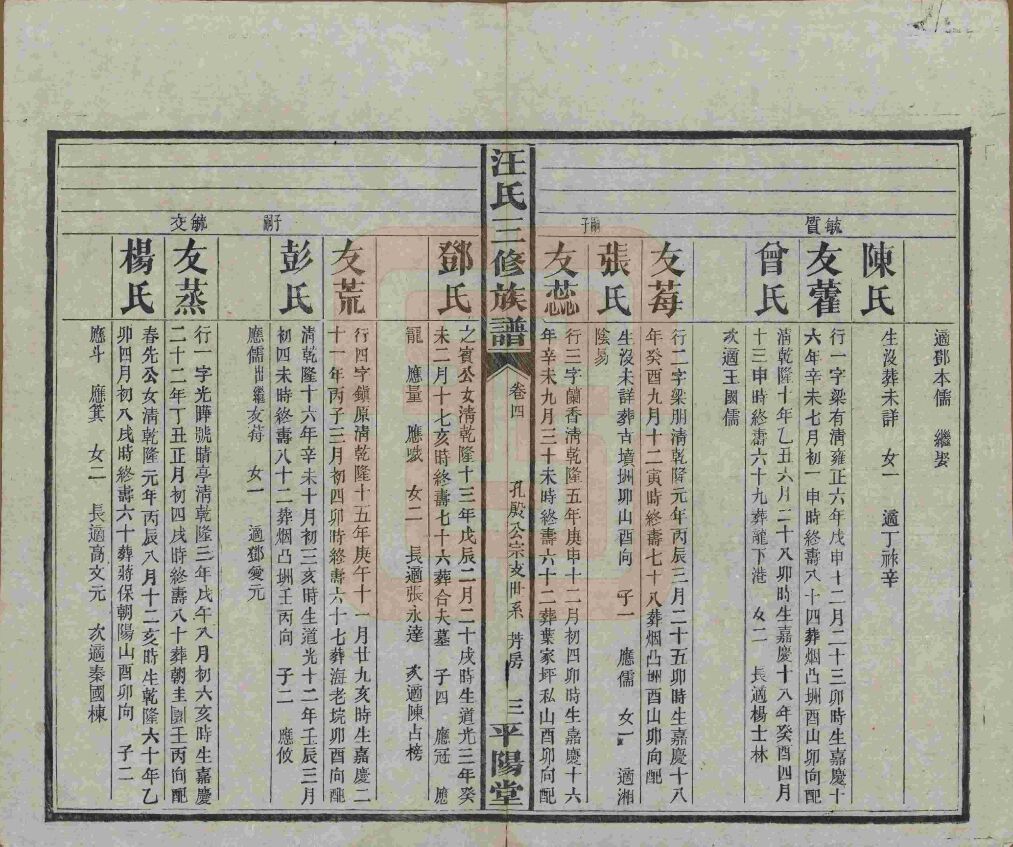 適鄧本儒　繼娶
陳氏
生沒葬未詳　女一　適丁祿辛
毓質
友藿
行一字梁有清雍正六年戊申十二月二十三卯時生嘉慶十
六年辛未七月初一申時終壽八十四葬烟凸㘭酉山卯向配
曾氏
清乾隆十年乙丑六月二十八卯時生嘉慶十八年癸酉四月
十三申時終壽六十九葬龍下港　女二　長適楊士林
次適王國儒
友莓
行二字梁朋清乾隆元年丙辰三月二十五卯時生嘉慶十八
年癸酉九月十二寅時終壽七十八葬烟凸㘭酉山卯向配
張氏
生沒未詳葬古墳㘭卯山酉向　子一　應儒　女一　適湘
陰易
嗣子
友蕊
行三字蘭香清乾隆五年庚申十二月初四卯時生嘉慶十六
年辛未九月三十未時終壽六十二葬葉家坪私山酉卯向配
汪氏三修族譜
卷四
孔殷公宗支世系　芳房
三
平陽堂
鄧氏
之賓公女清乾隆十三年戊辰二月二十戌時生道光三年癸
未二月十七亥時終壽七十六葬合夫墓　子四　應冠　應
龍　應量　應　女二　長適張永達　次適陳占榜
友荒
行四字鎮原清乾隆十五年庚午十一月廿九亥時生嘉慶二
十一年丙子三月初四卯時終壽六十七葬海老垸卯酉向配
彭氏
清乾隆十六年辛未十月初三亥時生道光十二年壬辰三月
初四未時終壽八十二葬烟凸㘭壬丙向　子二　應攸
應儒出繼友莓　女一　適鄧愛元
子嗣
毓交
友蒸
行一字光瞱號晴亭清乾隆三年戊午八月初六亥時生嘉慶
二十二年丁丑正月初四戌時終壽八十葬朝圭園壬丙向配
楊氏
春先公女清乾隆元年丙辰八月十二亥時生乾隆六十年乙
卯四月初八戌時終壽六十葬蔣保朝陽山酉卯向　子二
應斗　應箕　女二　長適高文元　次適秦國棟